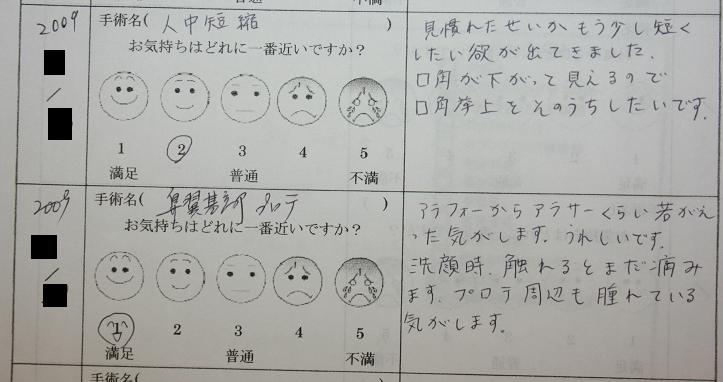 2009
手術名( 人中短縮 )
お気持ちはどれに一番近いですか?
1 2 3 4 5
満足 普通 不満
見慣れたせいか もう少し短く
したい欲が出てきました.
口角が下がって見えるので
口角挙上をそのうちしたいです.
2009
/
手術名( 鼻翼基部 プロテ )
お気持ちはどれに一番近いですか?
1 2 3 4 5
満足 普通 不満
アラフォーからアラサーくらい若がえ
った気がします. うれしいです.
洗顔時、触れるとまだ痛み
ます. プロテ周辺も腫れている
気がします.
手術名(
)